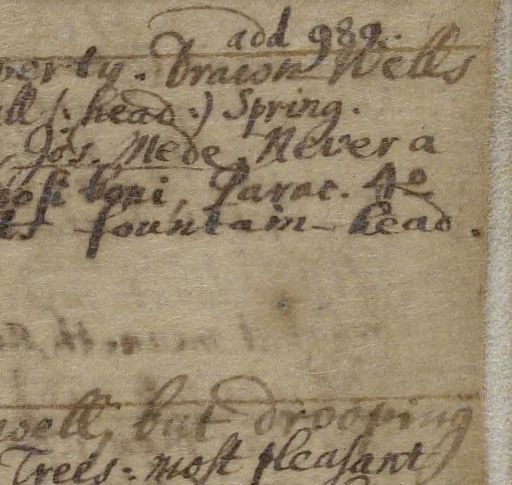 add 989.
verty. Dracon Wells
ll (: head :) Spring.
Jos. Mede. Never a
boni, Parae. 4o
ts fountain-head.
well, but drooping
Trees: most pleasant